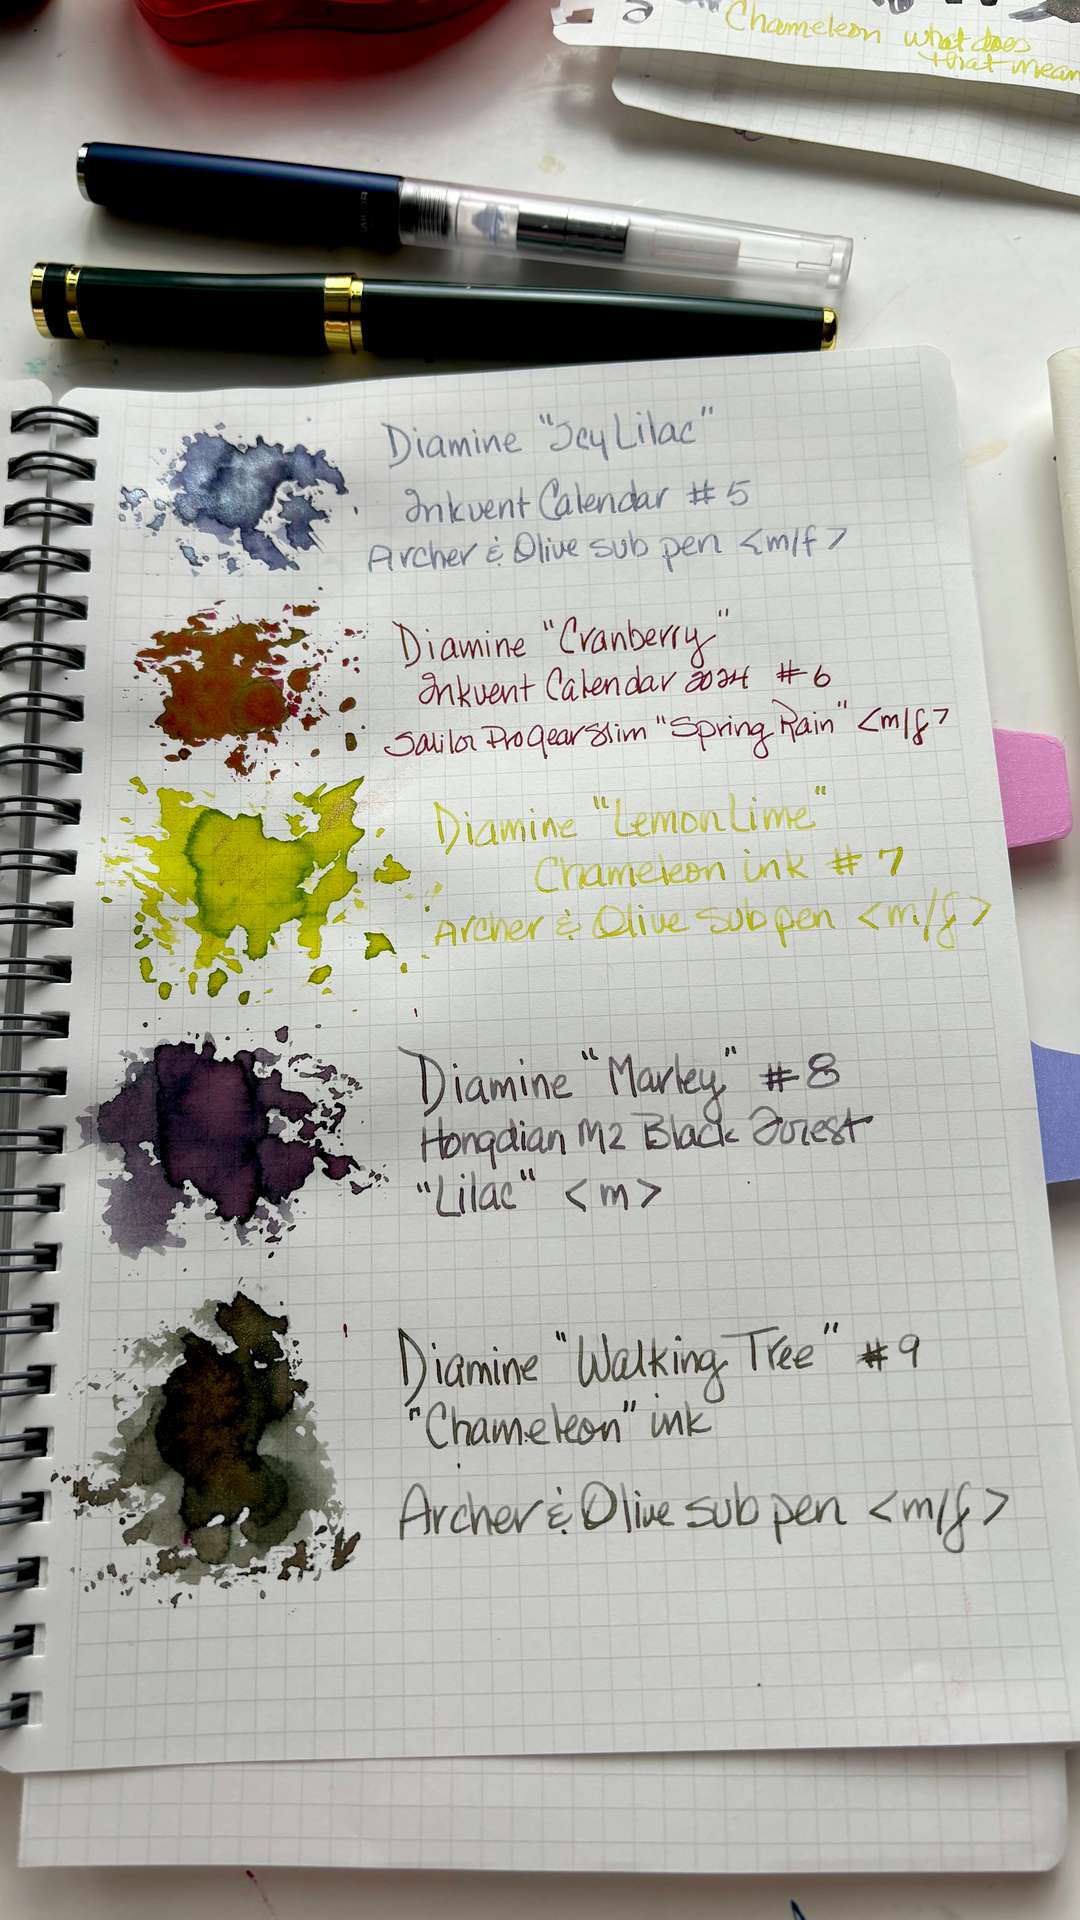 Chameleon what does
that mean
Diamine "Icy Lilac"
Inkvent Calendar #5
Archer & Olive sub pen <m/f>
Diamine "Cranberry"
Inkvent Calendar 2024 #6
Sailor Pro Gear Slim "Spring Rain" <m/f>
Diamine "Lemon Lime"
Chameleon ink #7
Archer & Olive sub pen <m/f>
Diamine "Marley" #8
Hongdian M2 Black Forest
"Lilac" <m>
Diamine "Walking Tree" #9
"Chameleon" ink
Archer & Olive sub pen <m/f>